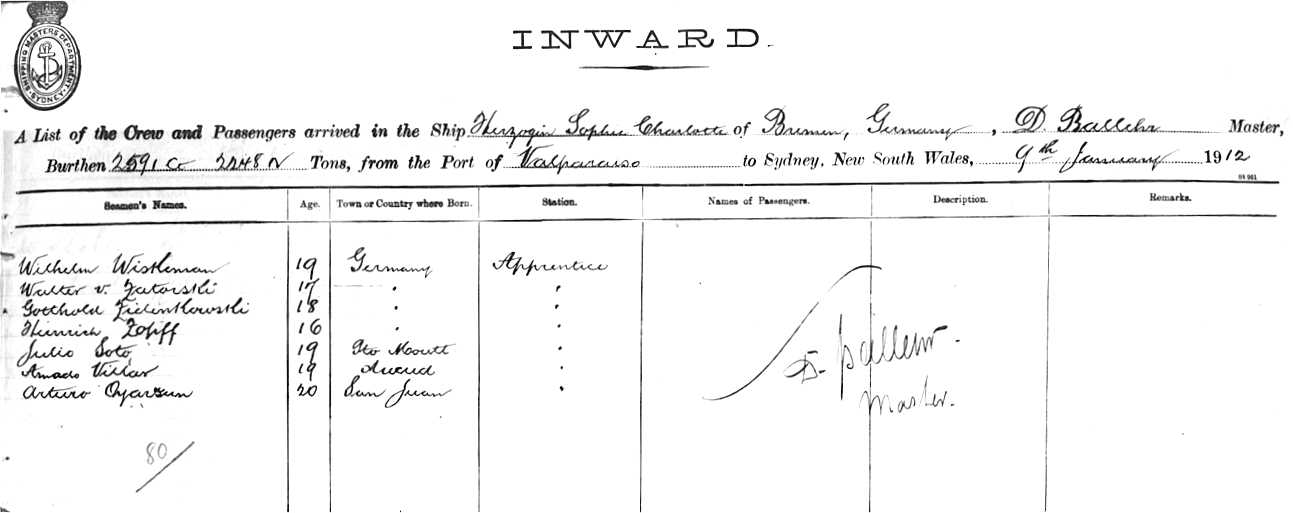 SHIPPING MASTERS DEPARTMENT. SYDNEY.
INWARD.
A List of the Crew and Passengers arrived in the Ship Herzogin Sophie Charlotte of Bremen, Germany, D. Ballehr Master,
Burthen 2591 G 2248 N Tons, from the Port of Valparaiso to Sydney, New South Wales, 9th January 1912
Seamen's Names. Age. Town or Country where Born. Station. Names of Passengers. Description. Remarks.
Wilhelm Wistleman 19 Germany Apprentice
Walter v. Zatorski 17 " "
Gotthold Zielintkowski 18 " "
Heinrich Zopff 16 " "
Julio Soto 19 Pto Montt "
Amado Villar 19 Ancud "
Arturo Oyarzun 20 San Juan "
D. Ballehr.
Master.
80/